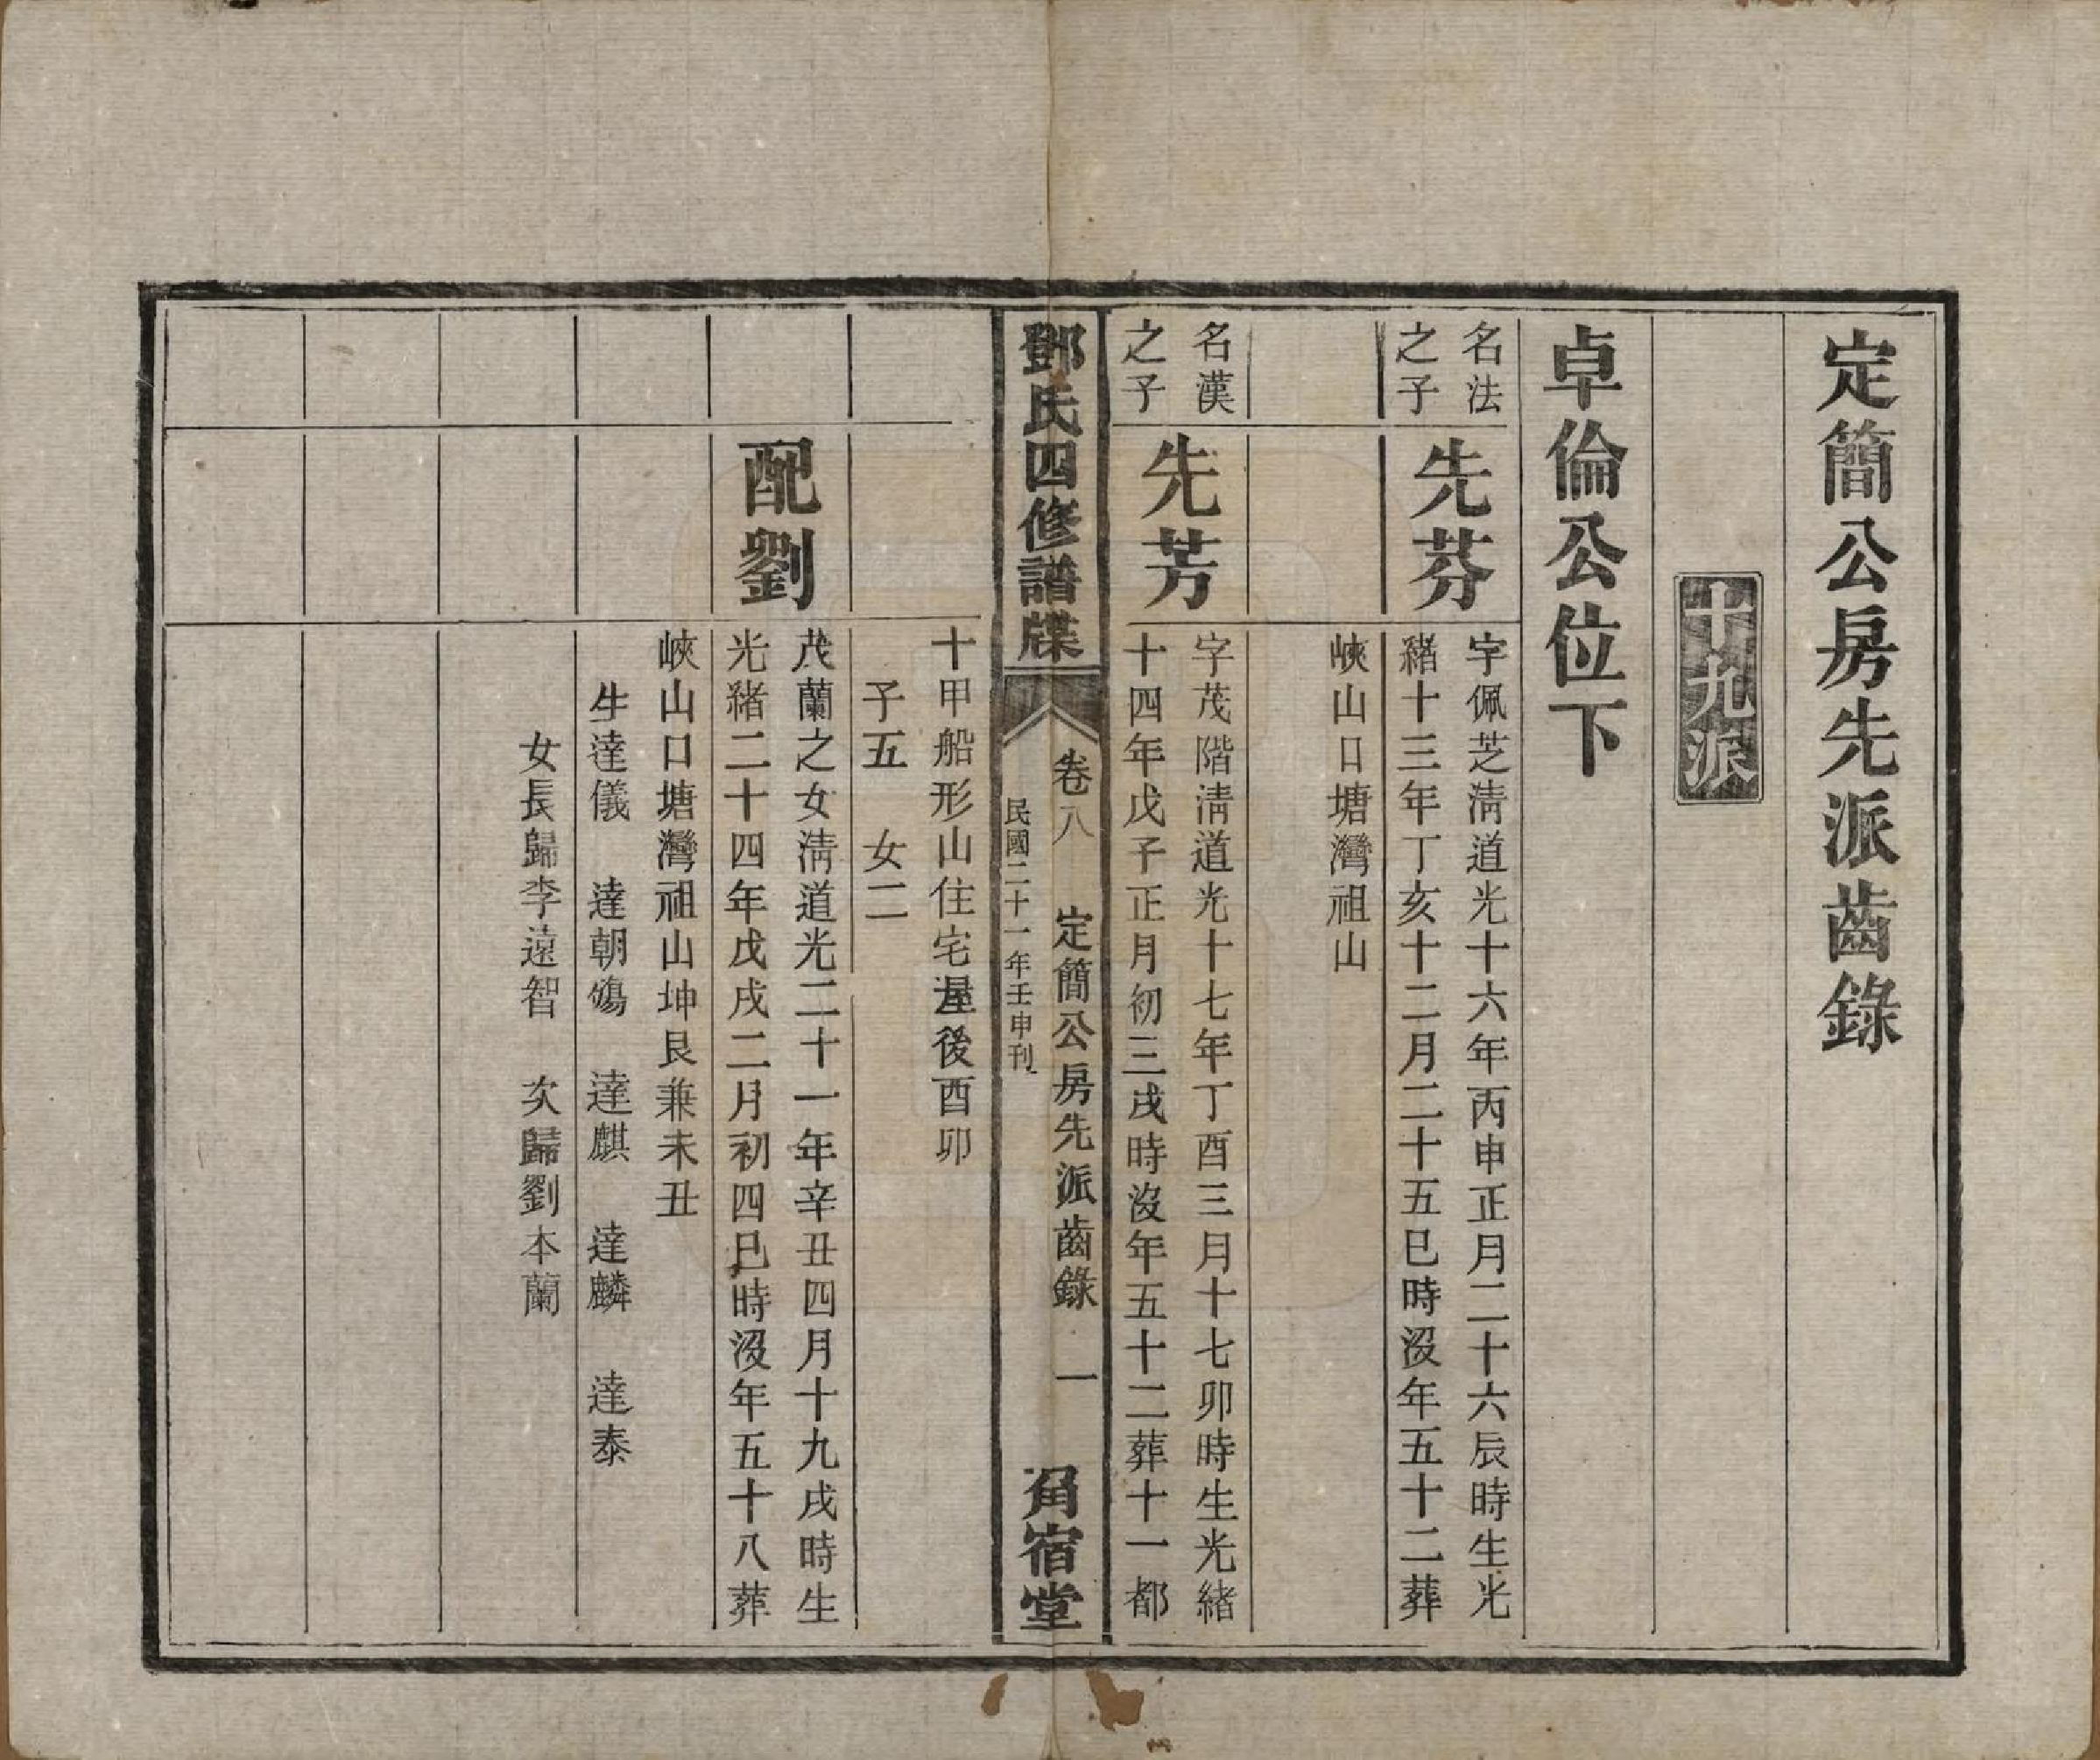 定簡公房先派齒錄
十九派
卓倫公位下
名法
之子
先芬
字佩芝淸道光十六年丙申正月二十六辰時生光
緖十三年丁亥十二月二十五巳時沒年五十二葬
峽山口塘灣祖山
名漢
之子
先芳
字茂階淸道光十七年丁酉三月十七卯時生光緖
十四年戊子正月初三戌時沒年五十二葬十一都
鄧氏四修譜牒
卷八 定簡公房先派齒錄 一
民國二十一年壬申刊
角宿堂
十甲船形山住宅屋後酉卯
子五 女二
配劉
茂蘭之女淸道光二十一年辛丑四月十九戌時生
光緖二十四年戊戌二月初四巳時沒年五十八葬
峽山口塘灣祖山坤艮兼未丑
生達儀 達朝殤 達麒 達麟 達泰
女長歸李遠智 次歸劉本蘭